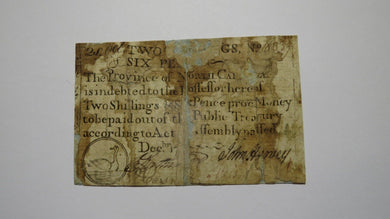 TWO GS, No
SIX PE
The Province of North Car
is indebted to the Possessor hereof
Two Shillings Pence proc. Money
to be paid out of th Public Treasury
according to Act ssembly passed
Decbr.
John Harvey